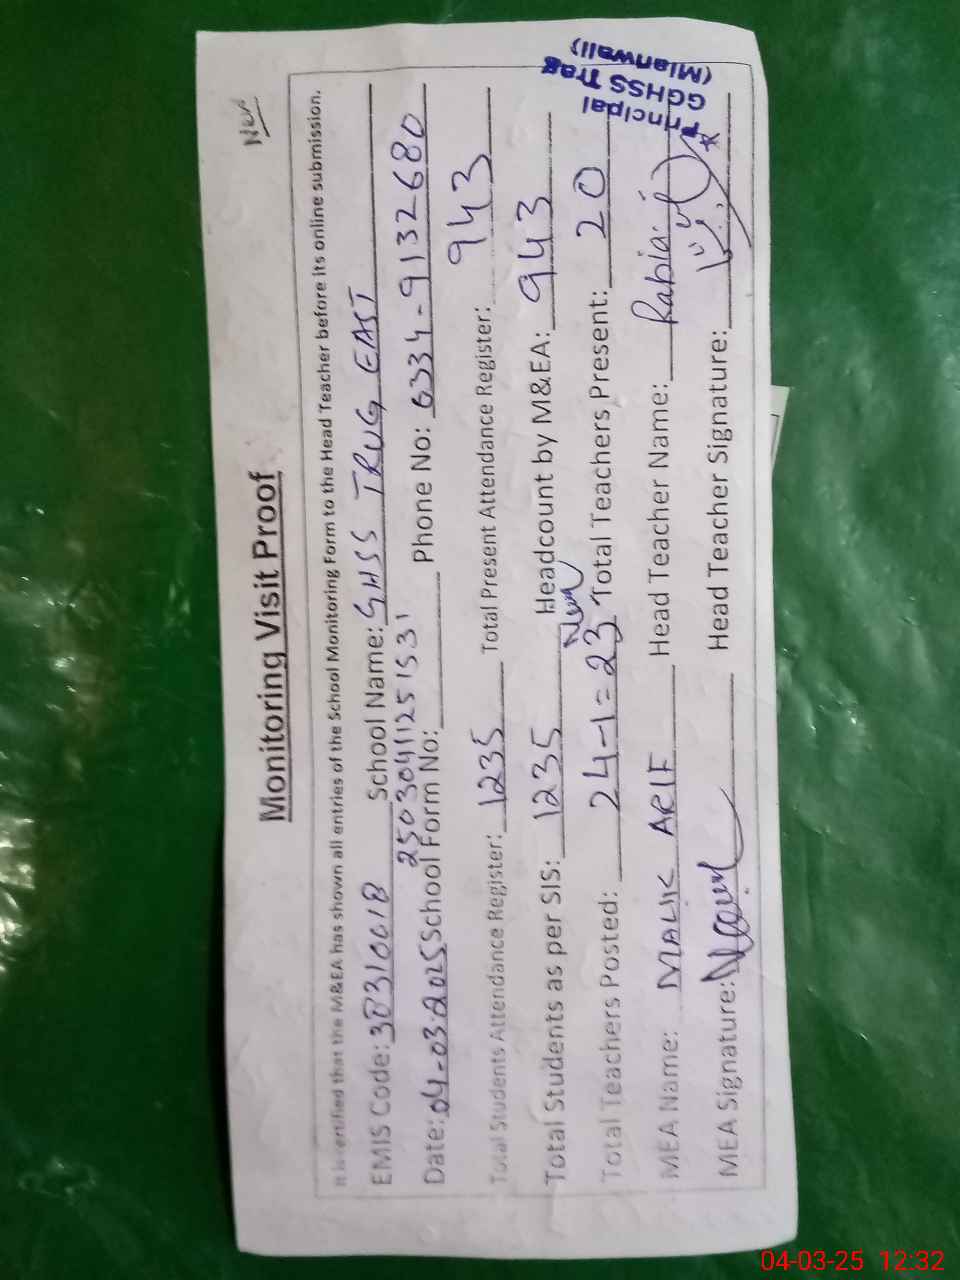 New
Monitoring Visit Proof
It is certified that the M&EA has shown all entries of the School Monitoring Form to the Head Teacher before its online submission.
EMIS Code: 38310018 School Name: GHSS TRUG EAST
Date: 04-03-2025 School Form No: 2503041251531 Phone No: 0334-9132680
Total Students Attendance Register: 1235 Total Present Attendance Register: 943
Total Students as per SIS: 1235 Headcount by M&EA: 943
Total Teachers Posted: 24-1=23 Total Teachers Present: 20
MEA Name: MALIK ARIF Head Teacher Name: Rabia
MEA Signature: Head Teacher Signature:
Principal
GGHSS Trag
(Mianwali)
04-03-25 12:32